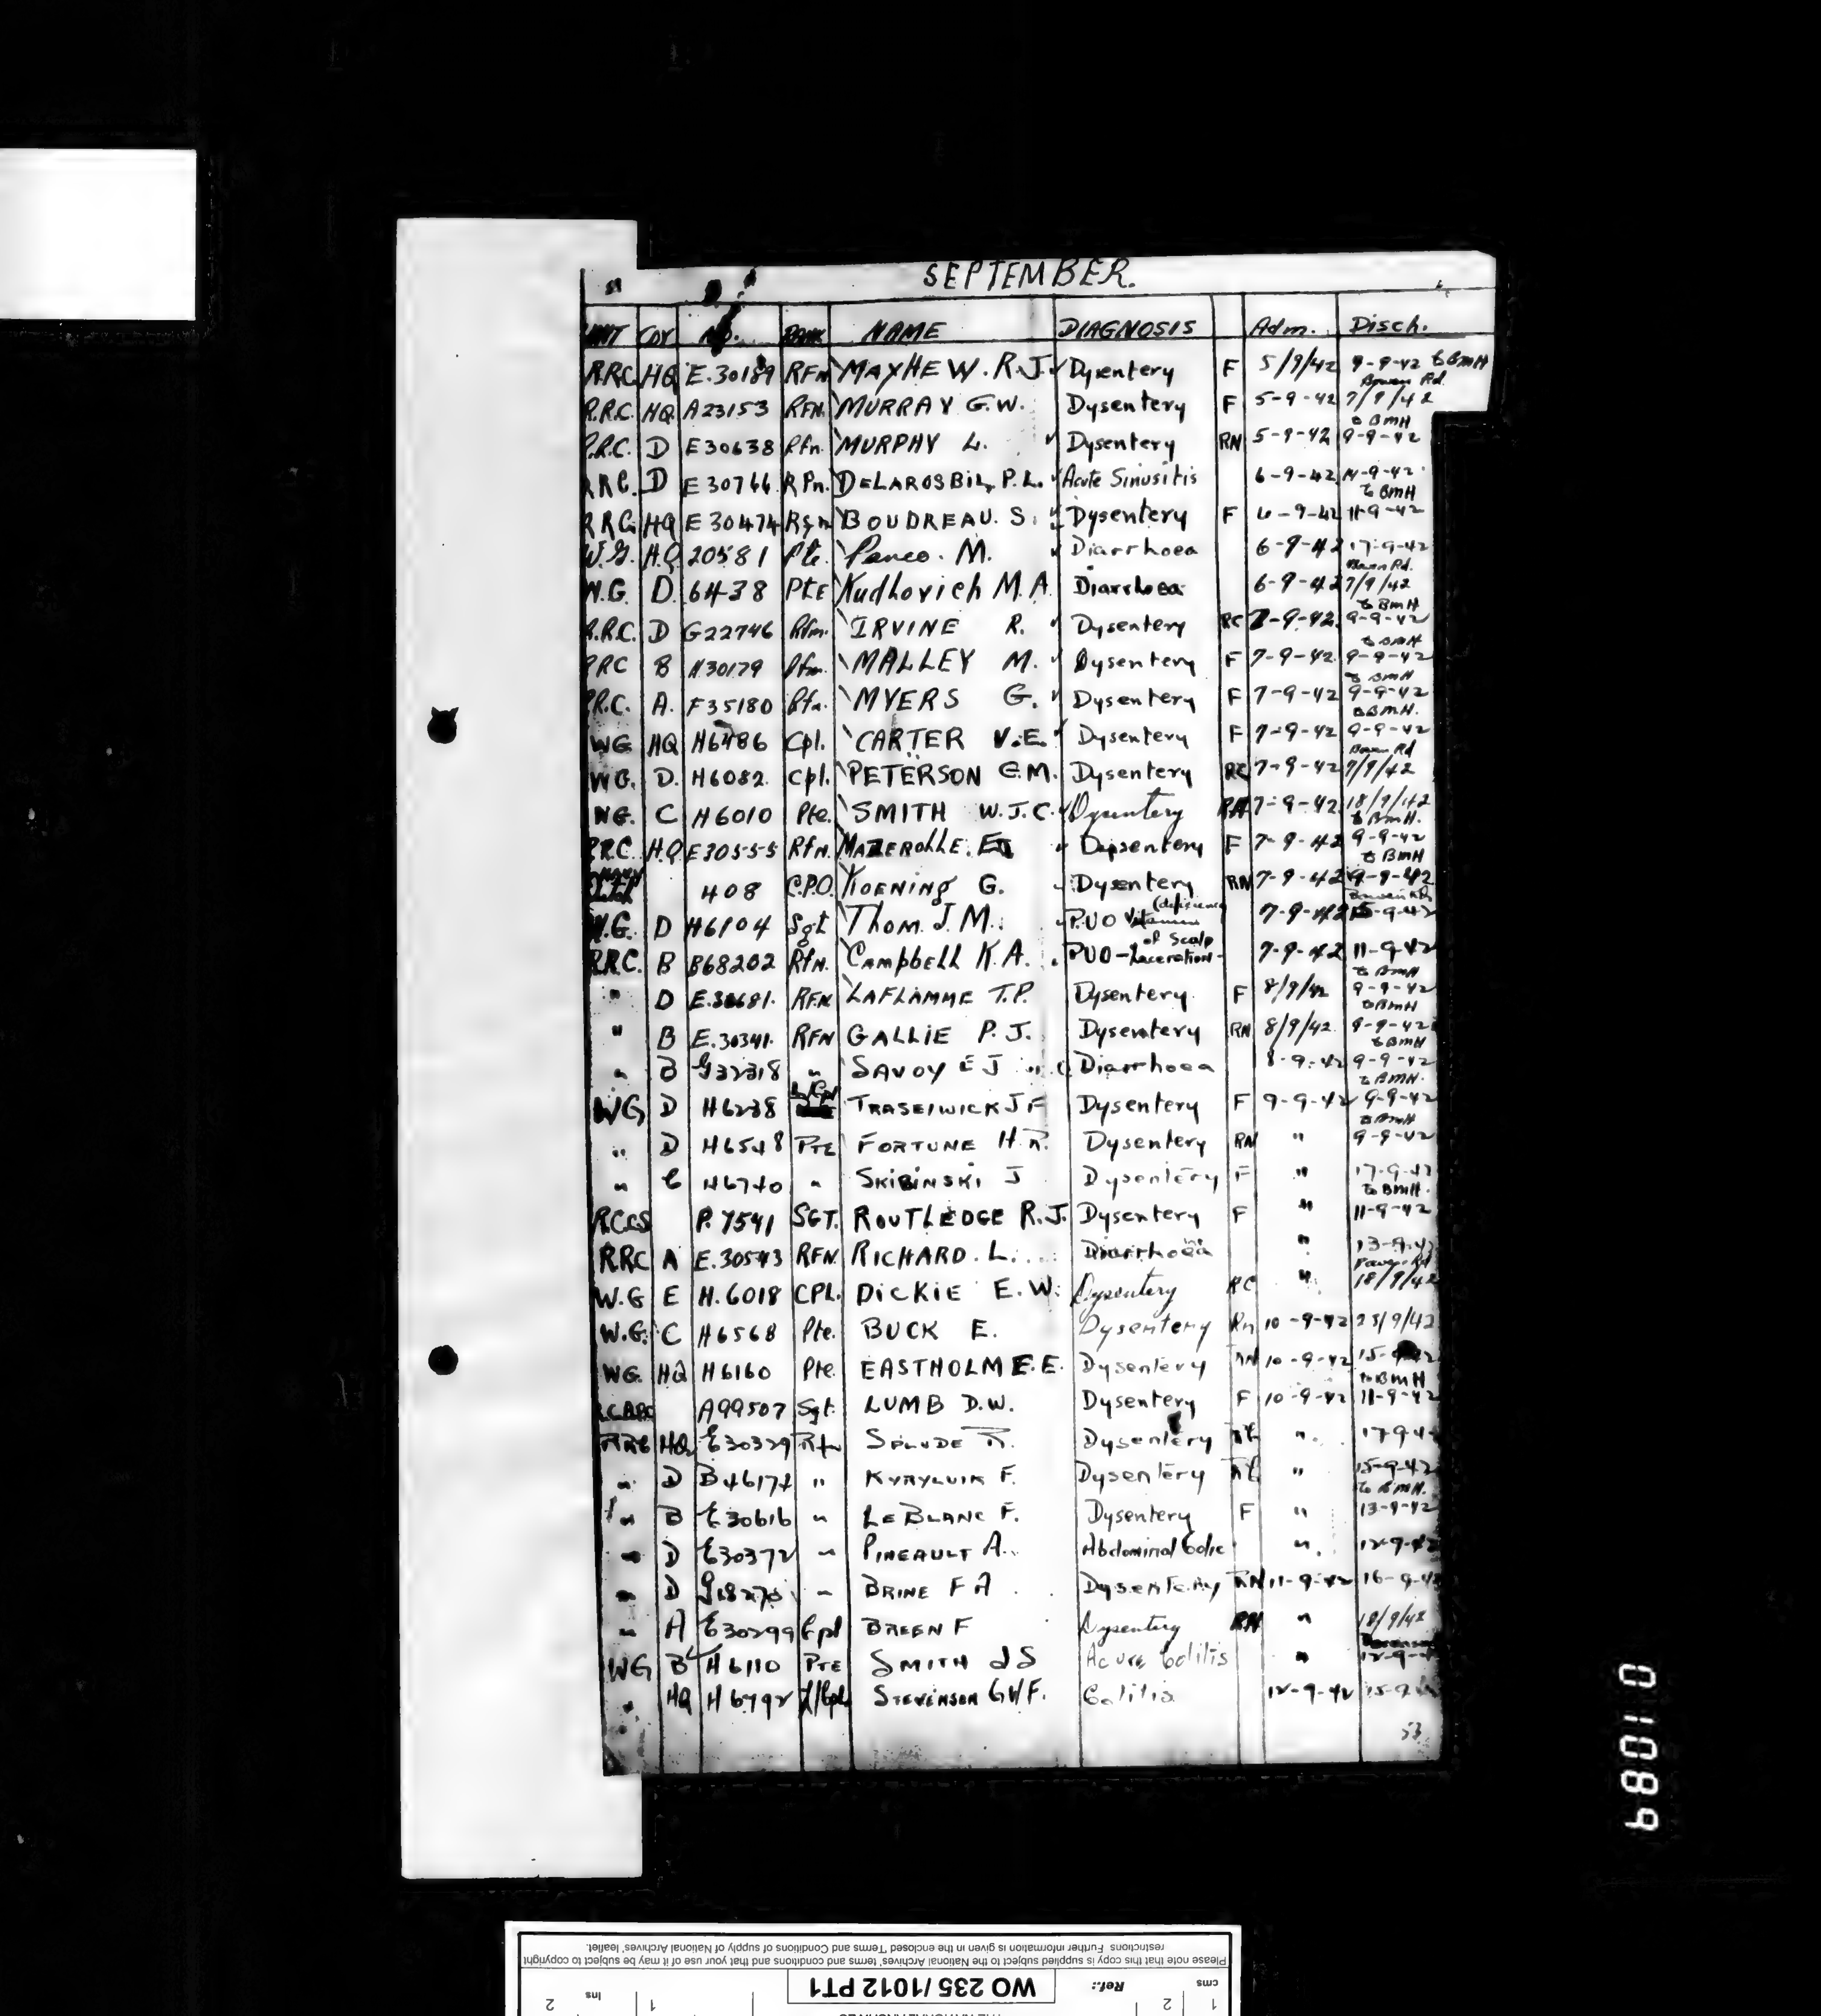 SEPTEMBER.
UNIT COY No. RANK NAME DIAGNOSIS Adm. Disch.
R.R.C. HQ E.30189 RFN MAYHEW. R.J. Dysentery F 5/9/42 9-9-42 to BMH
Bowen Rd.
R.R.C. HQ A23153 RFN. MURRAY G.W. Dysentery F 5-9-42 7/9/42
to BMH
R.R.C. D E30638 Rfn. MURPHY L. Dysentery RN 5-9-42 9-9-42
R.R.C. D E30766 Rfn. DELAROSBIL, P.L. Acute Sinusitis 6-9-42 14-9-42
to BMH
R.R.C. HQ E30474 Rfn BOUDREAU. S. Dysentery F 6-9-42 11-9-42
W.G. H.Q 20581 Pte. Penco. M. Diarrhoea 6-9-42 17-9-42
Bowen Rd.
W.G. D. 6438 Pte Kudhovich M.A. Diarrhoea 6-9-42 7/9/42
to BMH
R.R.C. D G22746 Rfm. IRVINE R. Dysentery RC 7-9-42. 9-9-42
to BMH
RRC B H30179 Rfm. MALLEY M. Dysentery F 7-9-42. 9-9-42
to BMH
R.R.C. A. F35180 Rfn. MYERS G. Dysentery F 7-9-42 9-9-42
to BMH.
WG HQ H6486 Cpl. CARTER V.E. Dysentery F 7-9-42 9-9-42
Bowen Rd
WG. D. H6082. Cpl. PETERSON G.M. Dysentery RC 7-9-42 7/9/42
WG. C H6010 Pte. SMITH W.J.C. Dysentery RN 7-9-42 18/9/42
to BMH.
R.R.C. H.Q E30555 Rfn. MAZEROLLE. EJ Dysentery F 7-9-42 9-9-42
to BMH
Dutch 408 C.P.O. KOENING G. Dysentery RN 7-9-42 9-9-42
Bowen Rd
(deficiency
W.G. D H6104 Sgt Thom. J.M. P.UO Vitamin 7-9-42 15-9-42
of Scalp
R.R.C. B B68202 Rfn. CAMPBELL K.A. PUO-Laceration- 7-9-42 11-9-42
to BMH
" D E.30681. RFN LAFLAMME T.P. Dysentery F 8/9/42 9-9-42
to BMH
" B E.30341. RFN GALLIE P.J. Dysentery RN 8/9/42. 9-9-42
to BMH
" B G32318 " SAVOY E J Diarrhoea 8-9-42 9-9-42
to BMH.
L/Cpl
WG D H6238 TRASEIWICK J F Dysentery F 9-9-42 9-9-42
to BMH
" D H6548 PTE FORTUNE H.R. Dysentery RN " 9-9-42
" C H6740 " SKIBINSKI J Dysentery F " 17-9-42
to BMH.
R.C.C.S P.7541 SGT. ROUTLEDGE R.J. Dysentery F " 11-9-42
RRC A E.30543 RFN. RICHARD. L. Diarrhoea " 13-9-42
Bowen Rd
W.G E H.6018 CPL. DICKIE E.W. Dysentery RC " 18/9/42
W.G. C H6568 Pte. BUCK E. Dysentery Rn 10-9-42 25/9/42
WG. HQ H6160 Pte. EASTHOLM E.E. Dysentery RN 10-9-42 15-9-42
to BMH
A99507 Sgt. LUMB D.W. Dysentery F 10-9-42 11-9-42
RRC HQ E30329 Rfn SPLUDE R. Dysentery RC " 17-9-42
" D B46174 " KYRYLUIK F. Dysentery RC " 15-9-42
to BMH.
" B E30616 " LEBLANC F. Dysentery F " 13-9-42
" D E30372 " PINEAULT A. Abdominal Colic " 12-9-42
" D G18270 " BRINE F A Dysentery RN 11-9-42 16-9-42
" A E30299 Cpl BREEN F Dysentery RN " 18/9/42
WG B H6110 PTE SMITH J S Acute Colitis " 12-9-42
" HQ H6792 L/Cpl STEVENSON G W F. Colitis 12-9-42 15-9
53
01089
Please note that this copy is supplied subject to the National Archives' terms and conditions and that your use of it may be subject to copyright
restrictions. Further information is given in the enclosed Terms and Conditions of supply of National Archives' leaflet.
Ref.: WO 235/1012 PT1
cms 1 2
Ins 1 2